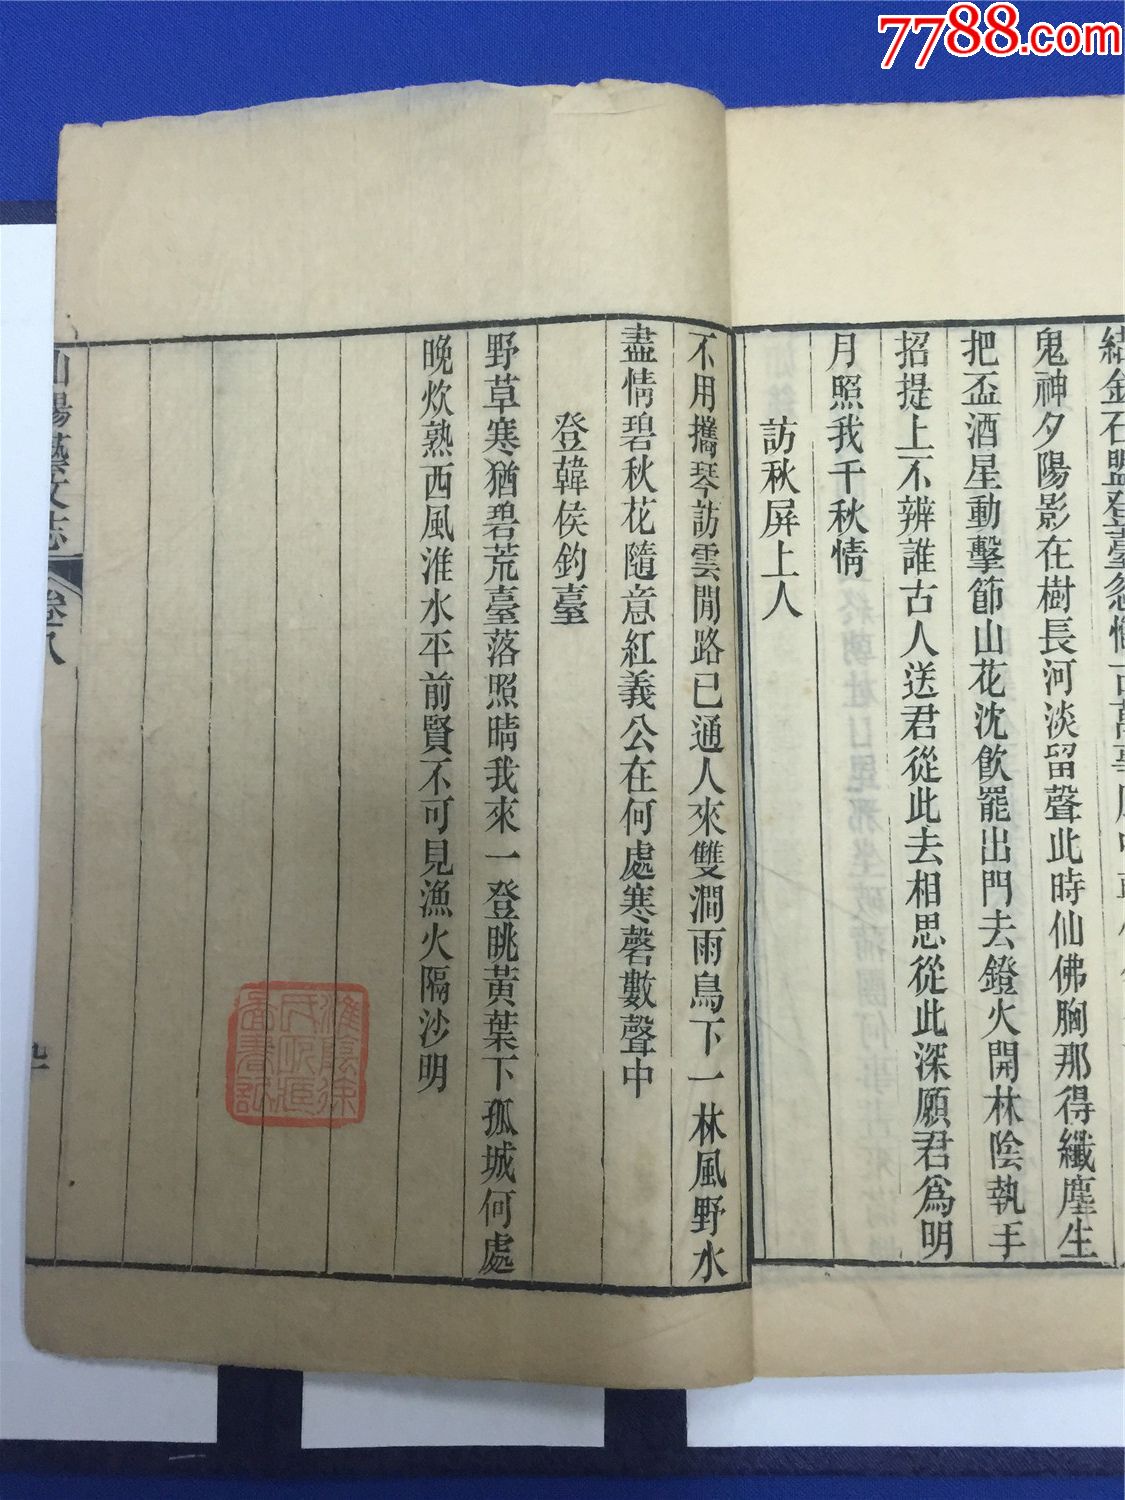 7788.com
鬼神夕陽影在樹長河淡留聲此時仙佛胸那得纖塵生
把盃酒星動擊節山花沈飲罷出門去鐙火開林陰執手
招提上不辨誰古人送君從此去相思從此深願君爲明
月照我千秋情
訪秋屏上人
不用攜琴訪雲閒路已通人來雙澗雨鳥下一林風野水
盡情碧秋花隨意紅義公在何處寒磬數聲中
登韓侯釣臺
野草寒猶碧荒臺落照晴我來一登眺黃葉下孤城何處
晚炊熟西風淮水平前賢不可見漁火隔沙明
山陽藝文志
卷八